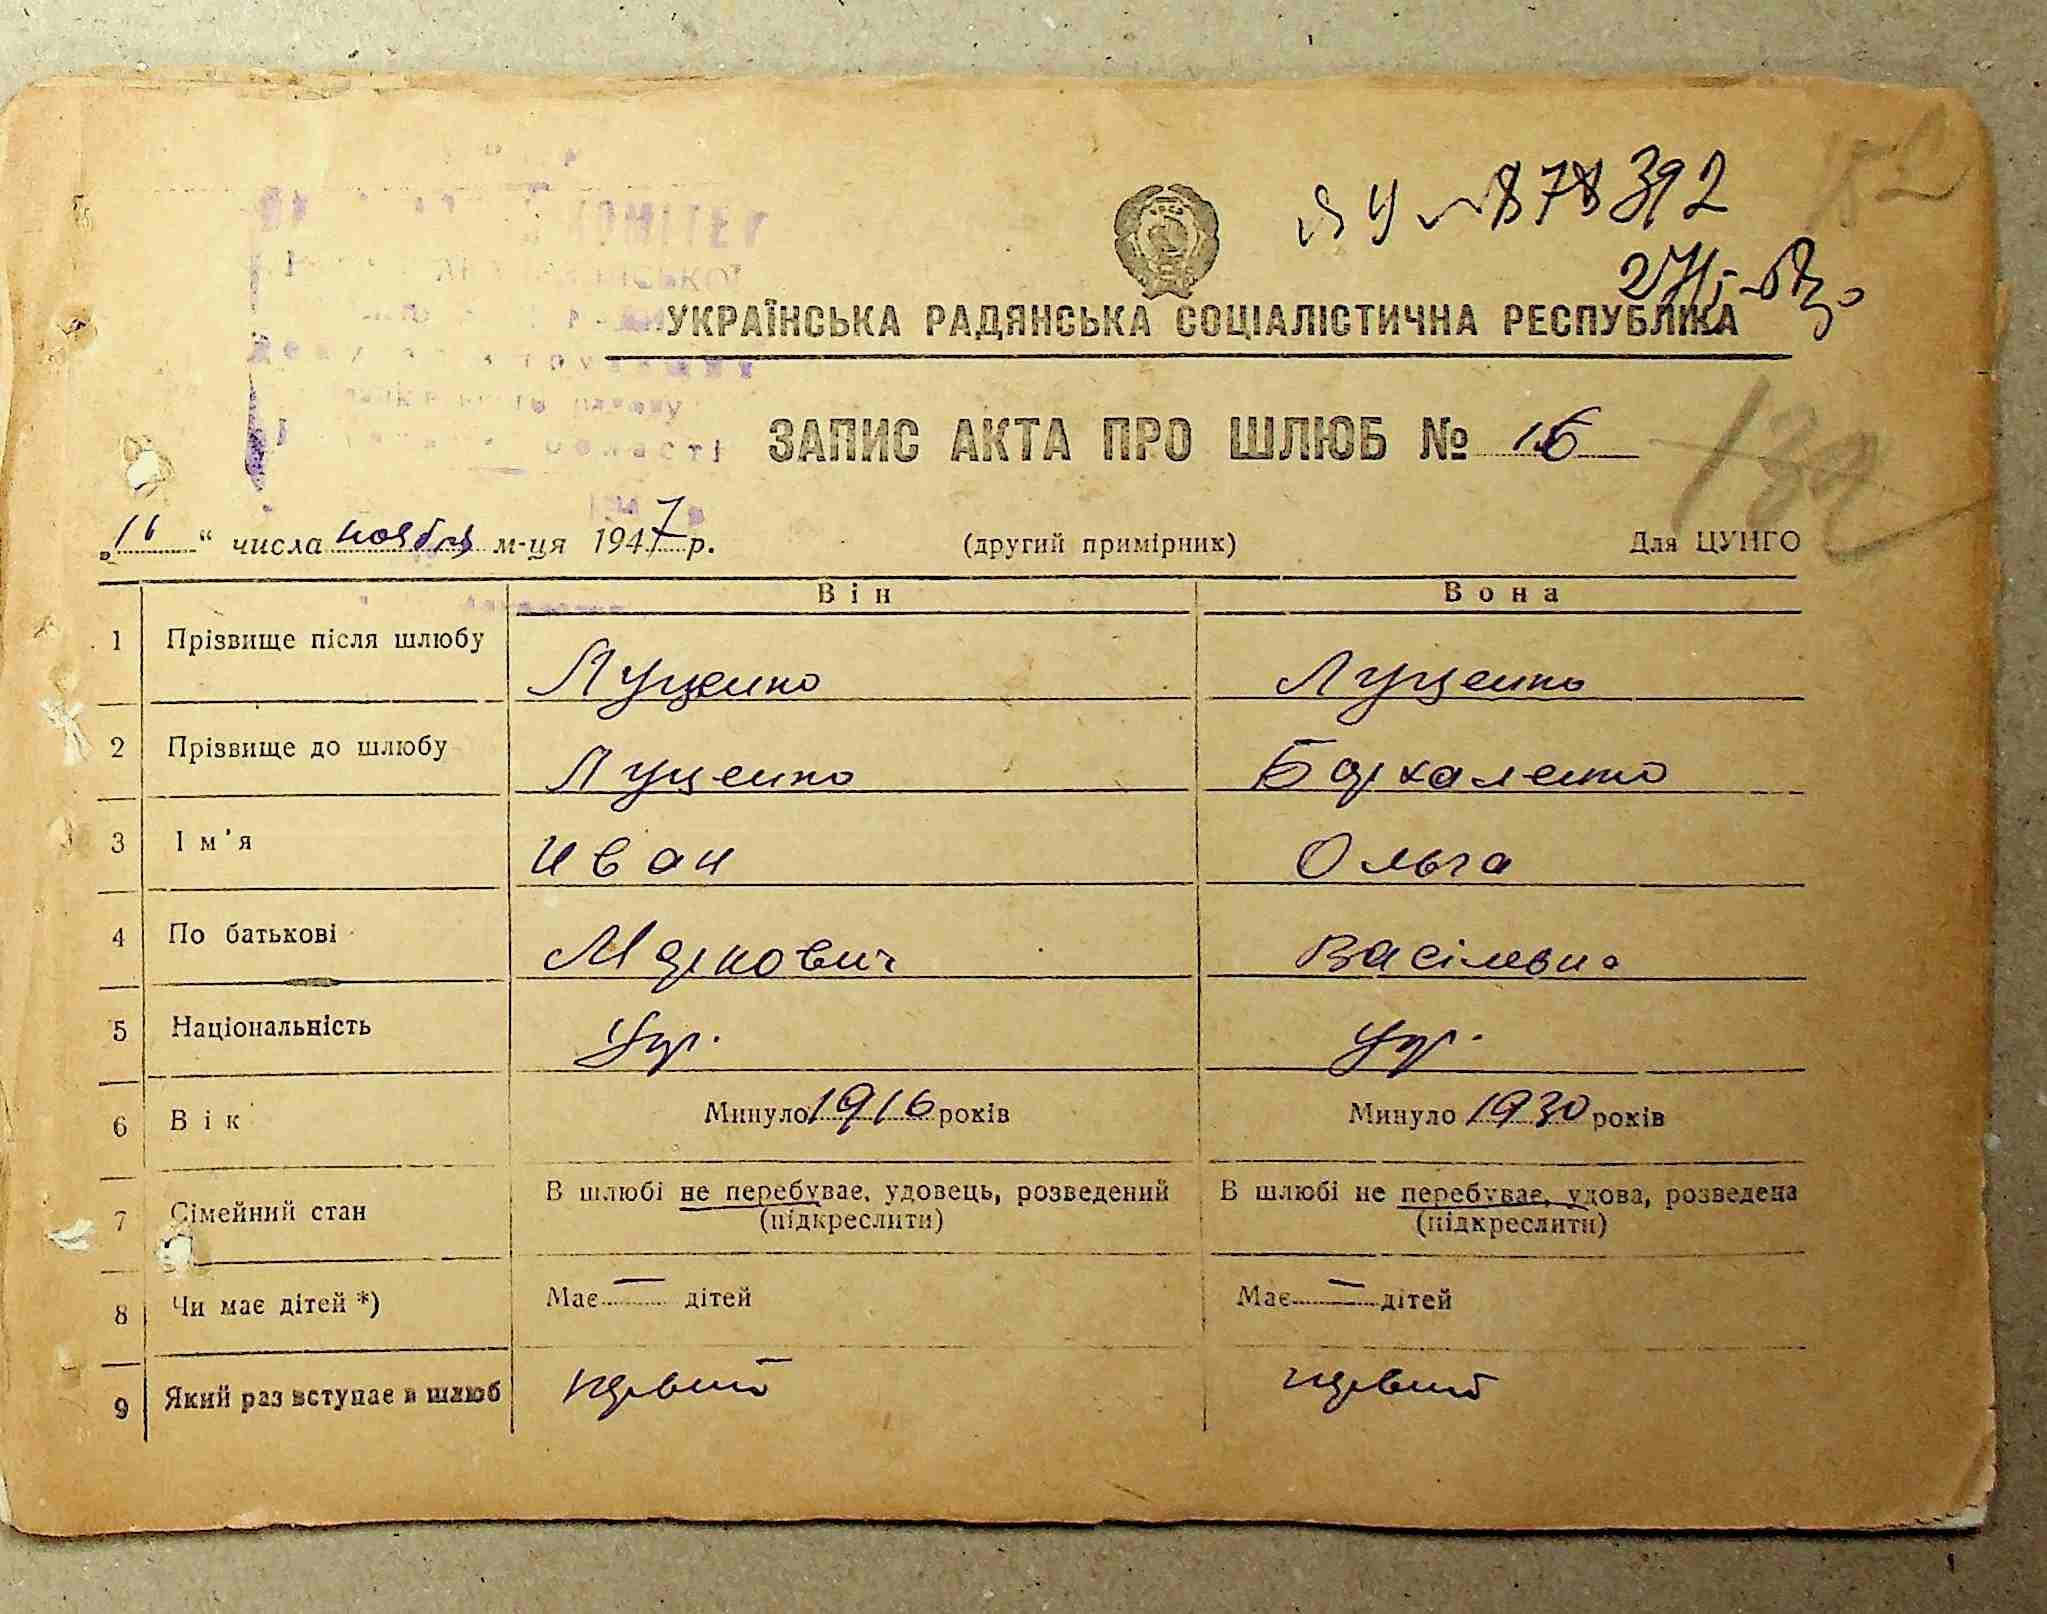 878392
УКРАЇНСЬКА РАДЯНСЬКА СОЦІАЛІСТИЧНА РЕСПУБЛІКА
ЗАПИС АКТА ПРО ШЛЮБ № 16
132
„16“ числа ноября м-ця 1947 р. (другий примірник) Для ЦУНГО
Він Вона
1 Прізвище після шлюбу Луценко Луценко
2 Прізвище до шлюбу Луценко
3 Ім'я Иван Ольга
4 По батькові Маркович Васілевна
5 Національність Укр. Укр.
6 Вік Минуло 1916 років Минуло 1930 років
7 Сімейний стан В шлюбі не перебуває, удовець, розведений В шлюбі не перебуває, удова, розведена
(підкреслити) (підкреслити)
8 Чи має дітей *) Має — дітей Має — дітей
9 Який раз вступає в шлюб первий первий